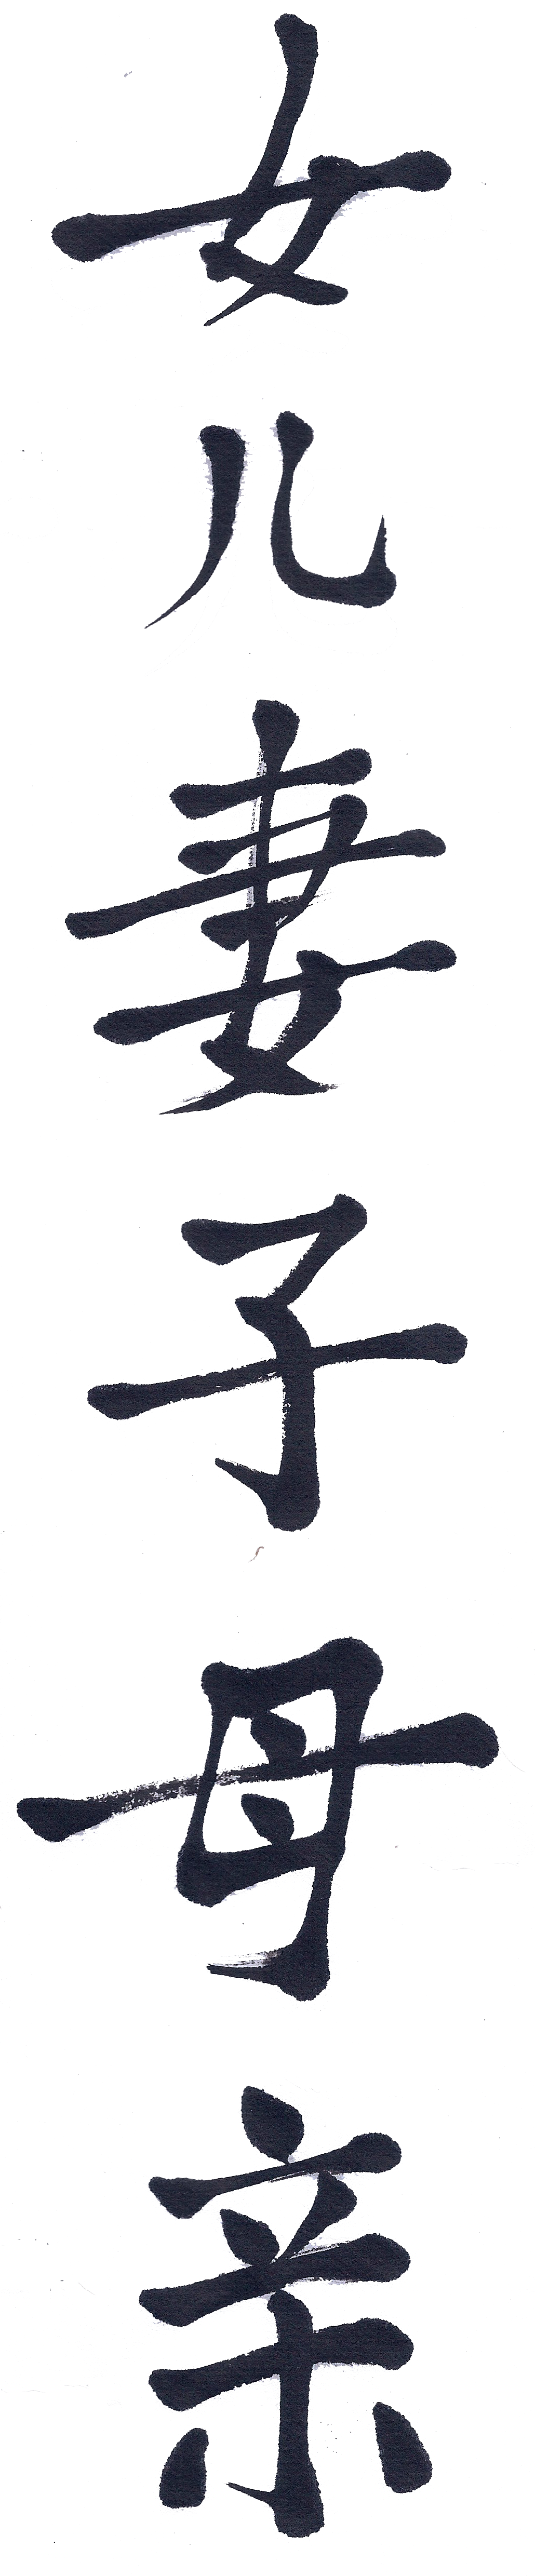 女儿妻子母亲